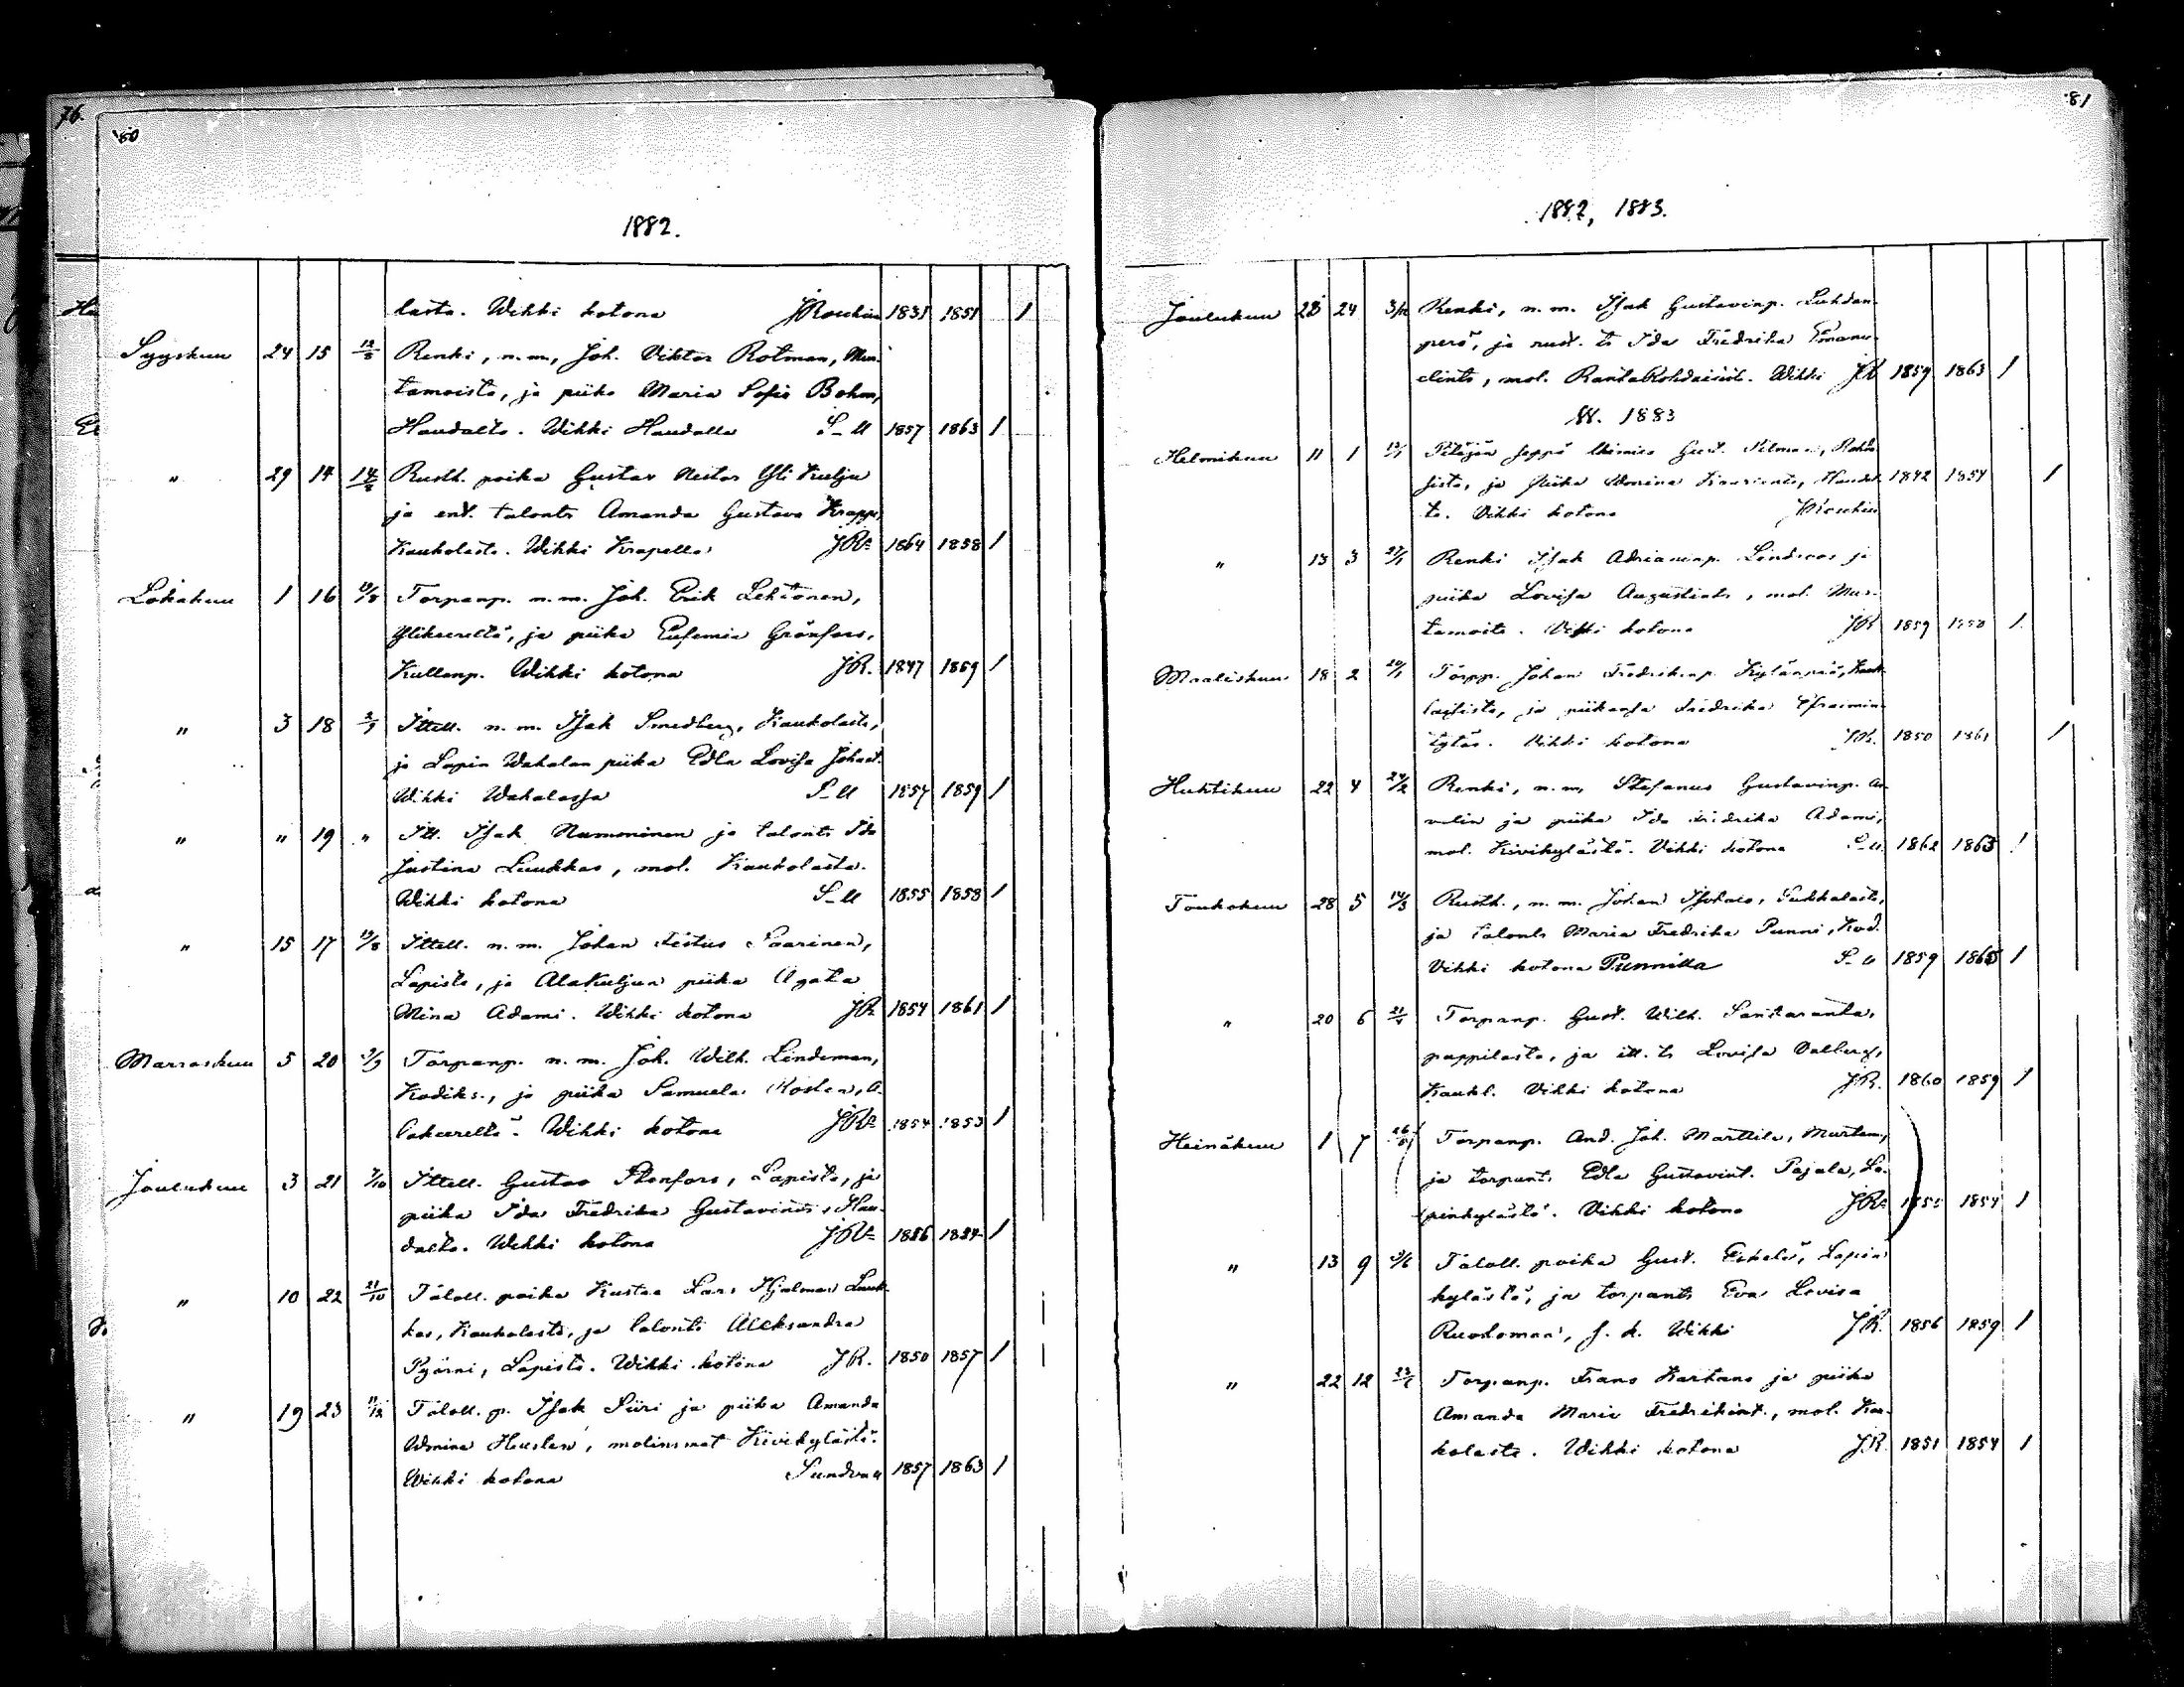 76.
80
1882.
lasta. Wihki kotona J Roschier 1831 1851 1
Syyskuu 24 15 12/8 Renki, n. m., Joh. Viktor Rotman, Mur-
tamoista, ja piika Maria Sofia Bohm,
Haudalta. Wihki Haudalla S-ll 1857 1863 1
" 29 14 Rusth. poika Gustav Nestor Yli Kulju
ja ent. talont. Amanda Gustava Krapp,
Kaukolasta. Wihki Krapella JRr 1864 1858 1
Lokakuu 1 16 19/8 Torpanp. n. m. Joh. Erik Lehtonen,
Ylikeereltä, ja piika Eufemia Grönfors,
Kullanp. Wihki kotona JR. 1847 1869 1
" 3 18 3/9 Ittell. n. m. Isak Smedberg, Kaukolasta,
ja Lapin Wahalan piika Edla Lovisa Johant.
Wihki Wahalassa S-ll 1857 1859 1
" " 19 " Itt. Isak Numminen ja talont. Ida
Justina Luukkas, mol. Kaukolasta.
Wihki kotona S-ll 1855 1858 1
" 15 17 19/8 Ittell. n. m. Johan Festus Saarinen,
Lapista, ja Alakuljun piika Agata
Mina Adami. Wihki kotona JR 1854 1861 1
Marraskuu 5 20 Torpanp. n. m. Joh. Wilh. Lindeman,
Kodiks., ja piika Samuela Koslen, A-
lakeereltä. Wihki kotona JRr 1854 1853 1
Joulukuu 3 21 7/10 Ittell. Gustav Stenfors, Lapista, ja
piika Ida Fredrika Gustavint., Hau-
dalta. Wihki kotona JRr 1856 1854 1
" 10 22 21/10 Taloll. poika Kustaa Lars Hjalmar Luuk-
kas, Kaukolasta, ja talont. Aleksandra
Pyörni, Lapista. Wihki kotona JR. 1850 1857 1
" 19 23 11/12 Taloll. p. Isak Siiri ja piika Amanda
Wmina Heuslen, molemmat Kivikylästä.
Wihki kotona Sundvall 1857 1863 1
81
1882, 1883.
Joulukuu 28 24 3/12 Renki, n. m. Isak Gustavinp. Luhdan-
perä, ja rust. t. Ida Fredrika Emanu-
elint., mol. Wihki JR 1859 1863 1
W. 1883
Helmikuu 11 1 Pitäjän seppä Gust.
sista, ja piika Haudal- 1842 1854 1
ta. Vihki kotona JRoschier
" 13 3 27/1 Renki Isak Adrianinp. Lindroos ja
piika Lovisa Augustint., mol. Mur-
tamoista. Wihki kotona JR 1859 1858 1
Maaliskuu 18 2 20/1 Torpp. Johan Fredrikinp. Kylänpää, Kauk-
laisista, ja piikansa Fredrika Efraimin-
tytär. Vihki kotona JR. 1850 1861 1
Huhtikuu 22 4 24/2 Renki, n. m. Stefanus Gustavinp. An-
velin ja piika Ida Fredrika Adami,
mol. Kivikylästä. Vihki kotona S-ll 1862 1863 1
Toukokuu 28 5 14/3 Rusth., n. m. Johan Isotalo,
ja talont. Maria Fredrika Punni, Kod.
Vihki kotona Punnilla S-ll 1859 1865 1
" 20 6 Torpanp. Gust. Wilh. Santaranta,
pappilasta, ja itt. t. Lovisa Dalberg,
Kaukl. Vihki kotona JR. 1860 1859 1
Heinäkuu 1 7 Torpanp. And. Joh. Marttila, Murtam,
ja torpant. Edla Gustavint. Pajala, La-
pinkylästä. Vihki kotona JRr 1855 1854 1
" 13 9 Taloll. poika Gust. Eskola, Lapin
kylästä, ja torpant. Eva Lovisa
Ruohomaa, s. k. Wihki JR. 1856 1859 1
" 22 12 Torpanp. Frans Kartano ja piika
Amanda Maria Fredrikint., mol. Kau-
kolasta. Wihki kotona JR. 1851 1854 1